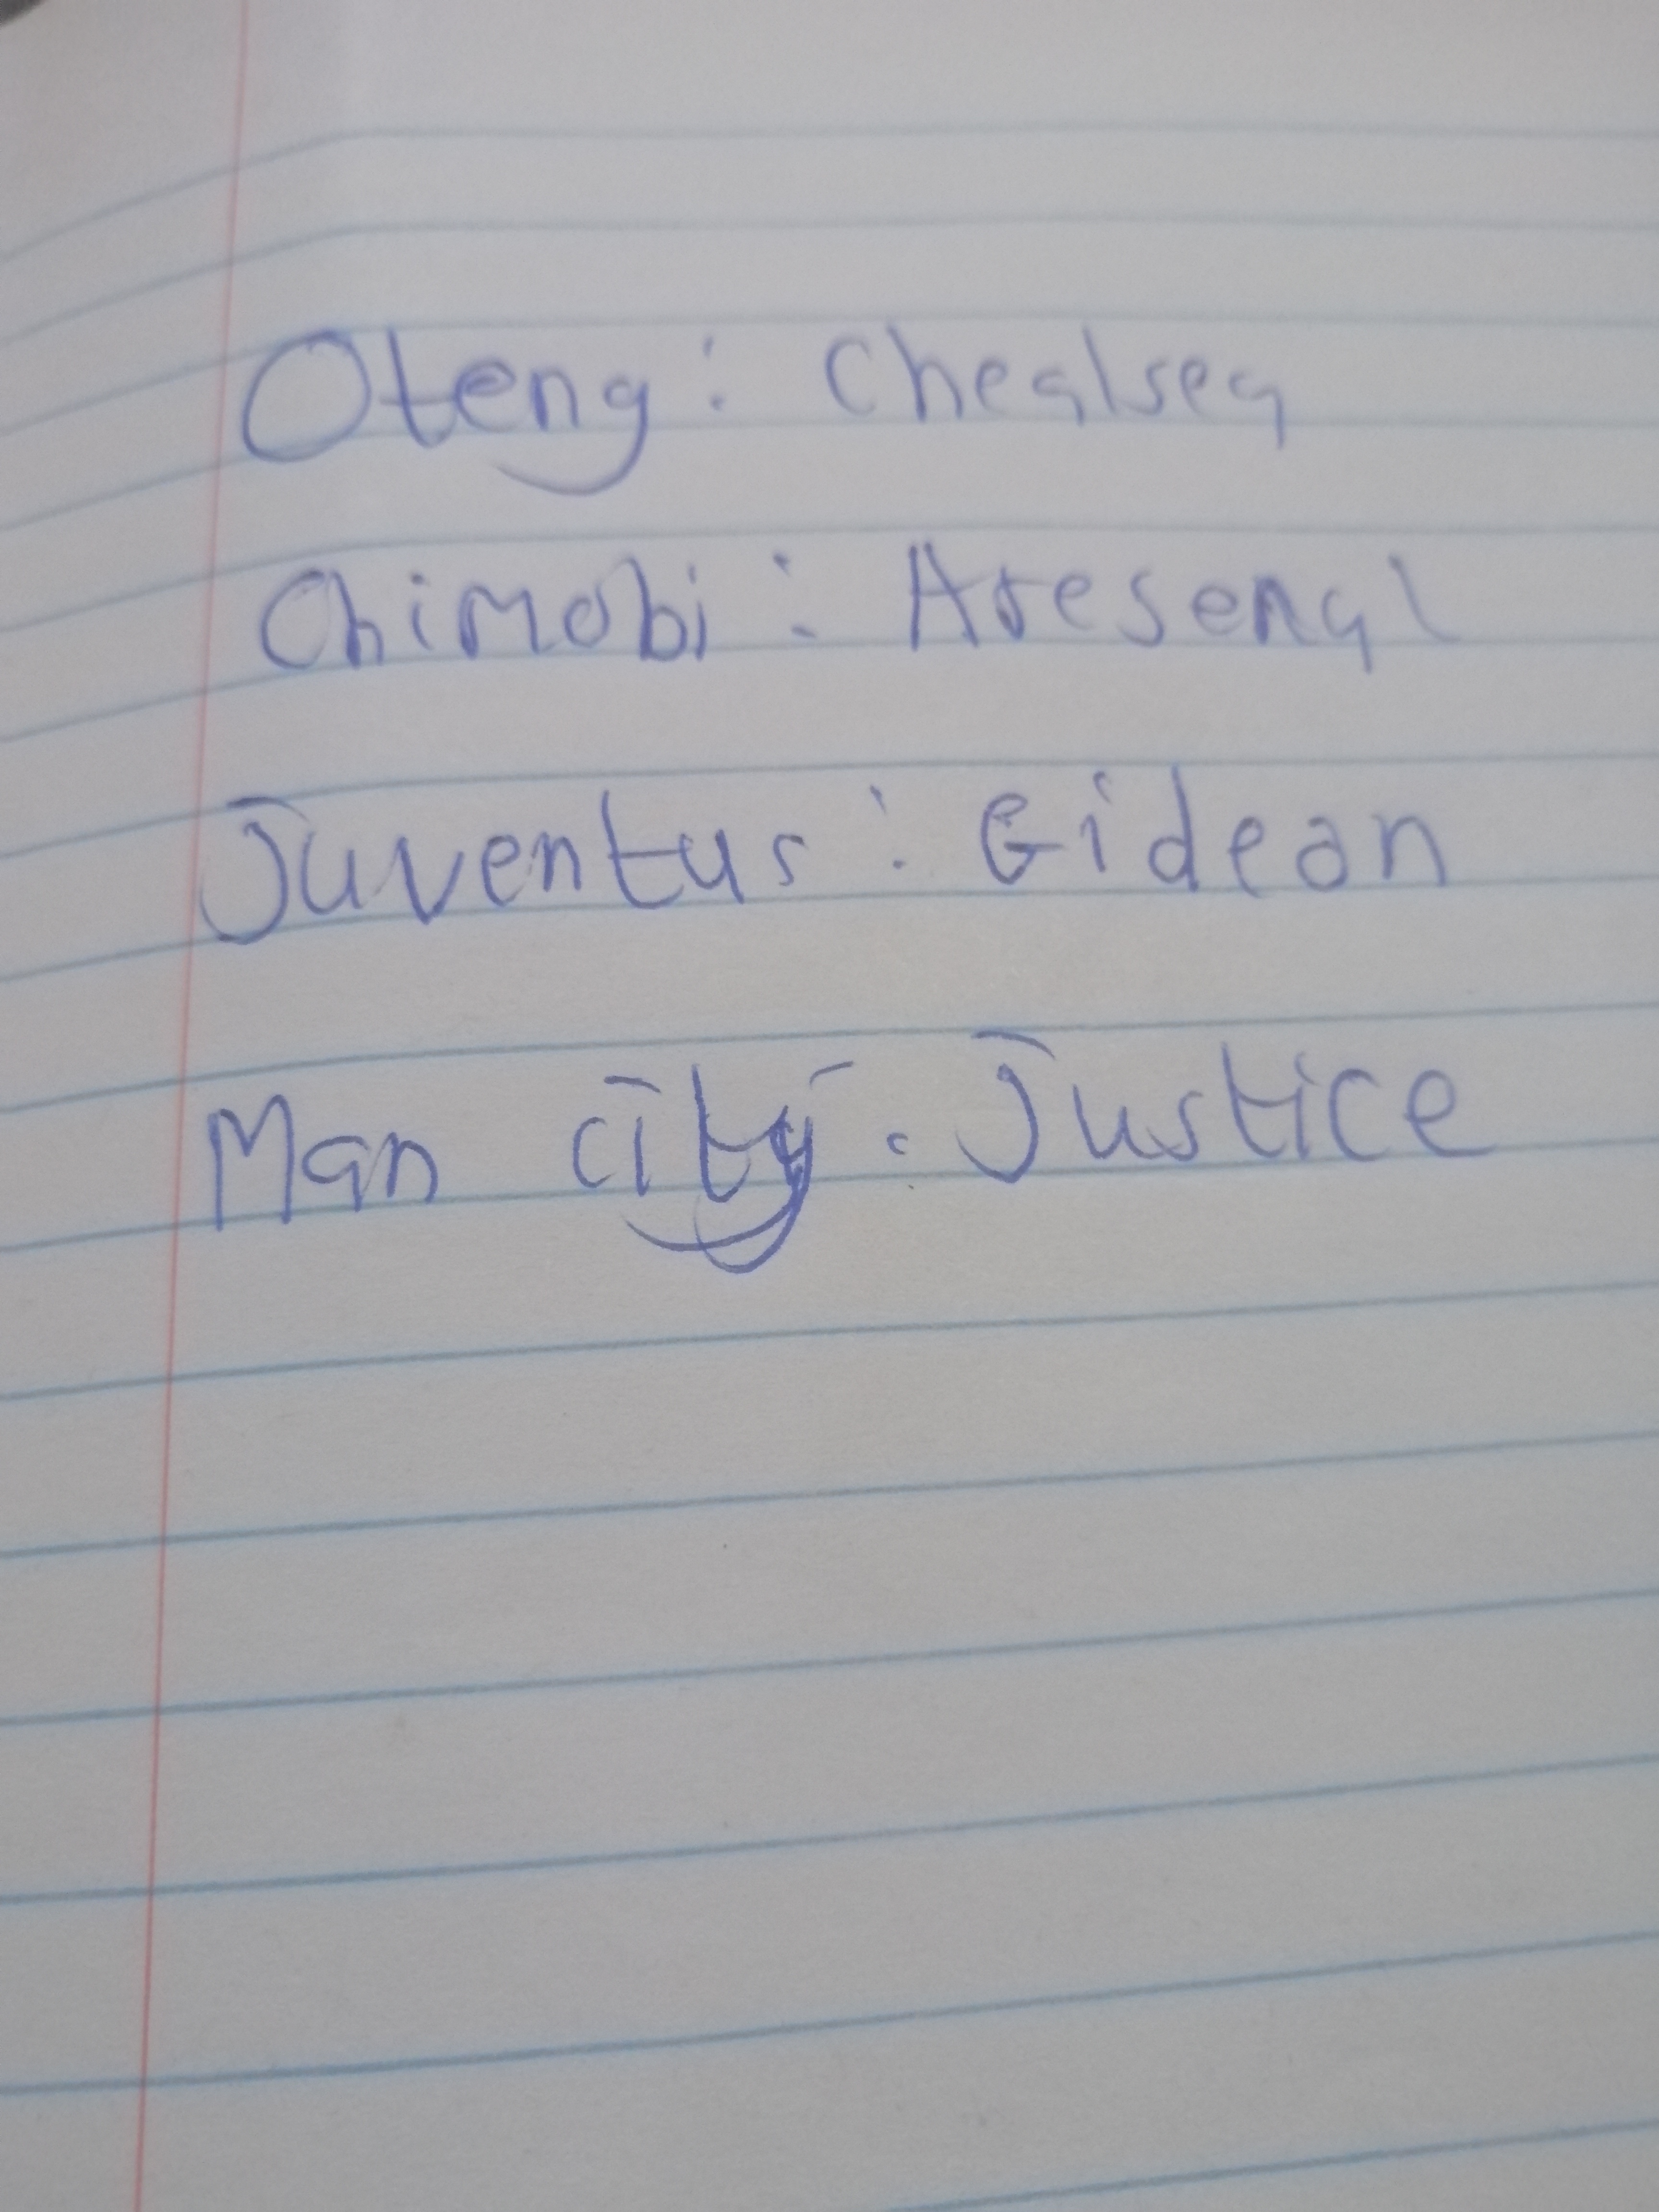 Oteng: Chealsea
Chimobi: Aresenal
Juventus: Gideon
Man city. Justice